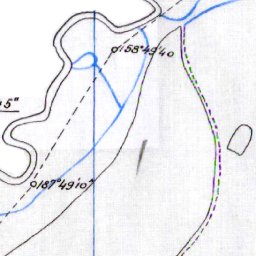 158°49'40
5"
187°49'10"